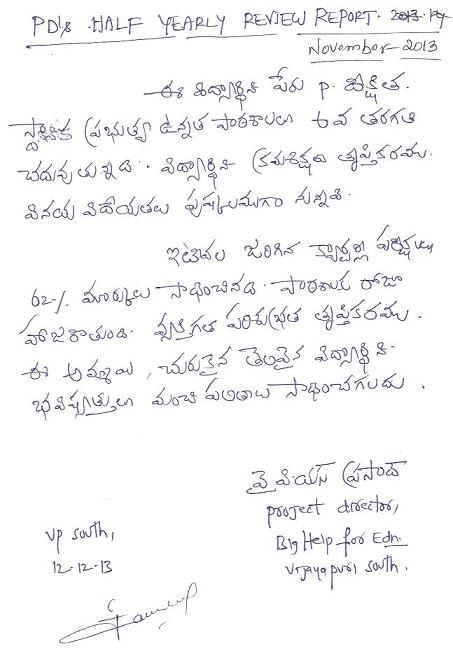 PD'S HALF YEARLY REVIEW REPORT. 2013-14
November-2013
ఈ విద్యార్థిని పేరు P. దీక్షిత.
స్థానిక ప్రభుత్వ ఉన్నత పాఠశాలలు 6వ తరగతి
చదువుతున్నది. విద్యార్థిని క్రమశిక్షణ తృప్తికరము.
వినయ విధేయతలు పుష్కలముగా నున్నవి.
ఇటీవల జరిగిన క్వార్టర్లీ పరీక్షలలో
62% మార్కులు సాధించినది. పాఠశాలకు రోజూ
హాజరౌతుంది. వ్యక్తిగత పరిశుభ్రత తృప్తికరము.
ఈ అమ్మాయి, చురుకైన తెలివైన విద్యార్థిని.
భవిష్యత్తులో మంచి ఫలితాలు సాధించగలదు.
వై పియస్ ప్రసాద్
project director,
Big Help for Edn.
Vijayapuri south.
VP south,
12-12-13